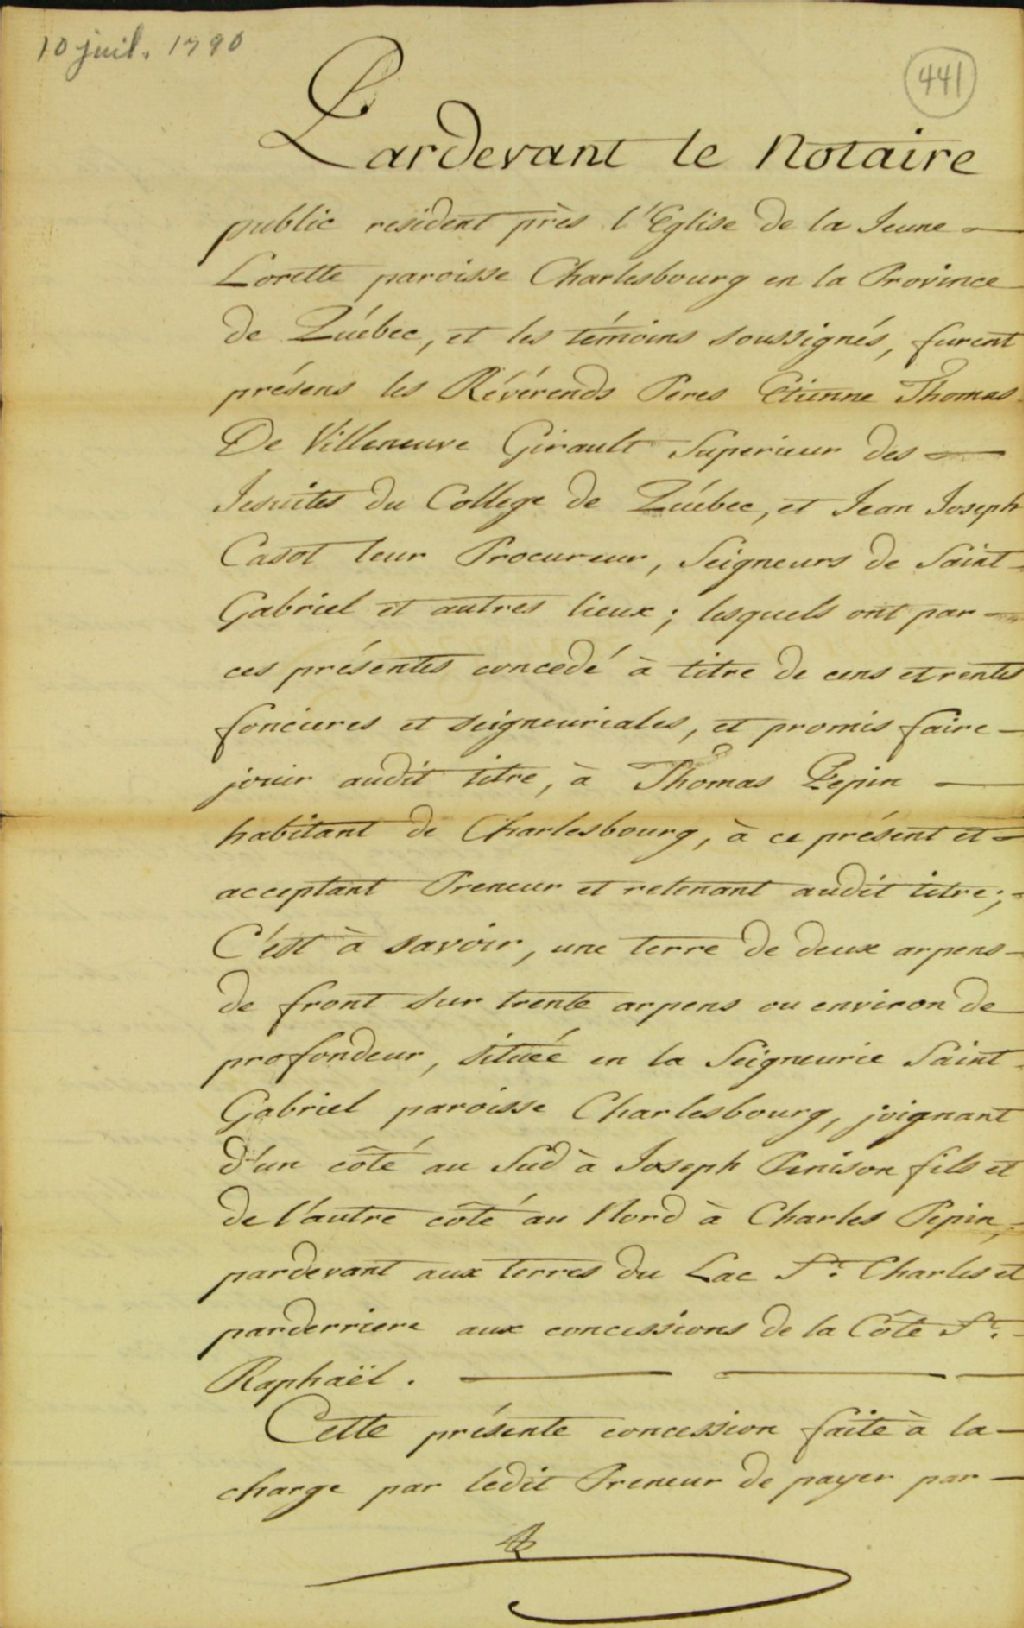 10 juil. 1790
441
Pardevant le Notaire
public resident près l'Eglise de la Jeune
Lorette paroisse Charlesbourg en la Province
de Québec, et les témoins soussignés, furent
présens les Révérends Peres Etienne Thomas
De Villeneuve Girault Superieur des
Jesuites du College de Québec, et Jean Joseph
Casot leur Procureur, Seigneurs de Saint-
Gabriel et autres lieux; lesquels ont par
ces présentes concedé à titre de cens et rentes
foncieres et seigneuriales, et promis faire
jouir audit titre, à Thomas Pepin
habitant de Charlesbourg, à ce présent et
acceptant Preneur et retenant audit titre;
C'est à savoir, une terre de deux arpens
de front sur trente arpens ou environ de
profondeur, située en la Seigneurie Saint-
Gabriel paroisse Charlesbourg, joignant
d'un côté au Sud à Joseph Penison fils et
de l'autre côté au Nord à Charles Pepin,
pardevant aux terres du Lac St. Charles et
parderriere aux concessions de la Côte St.
Raphaël.
Cette présente concession faite à la
charge par ledit Preneur de payer par